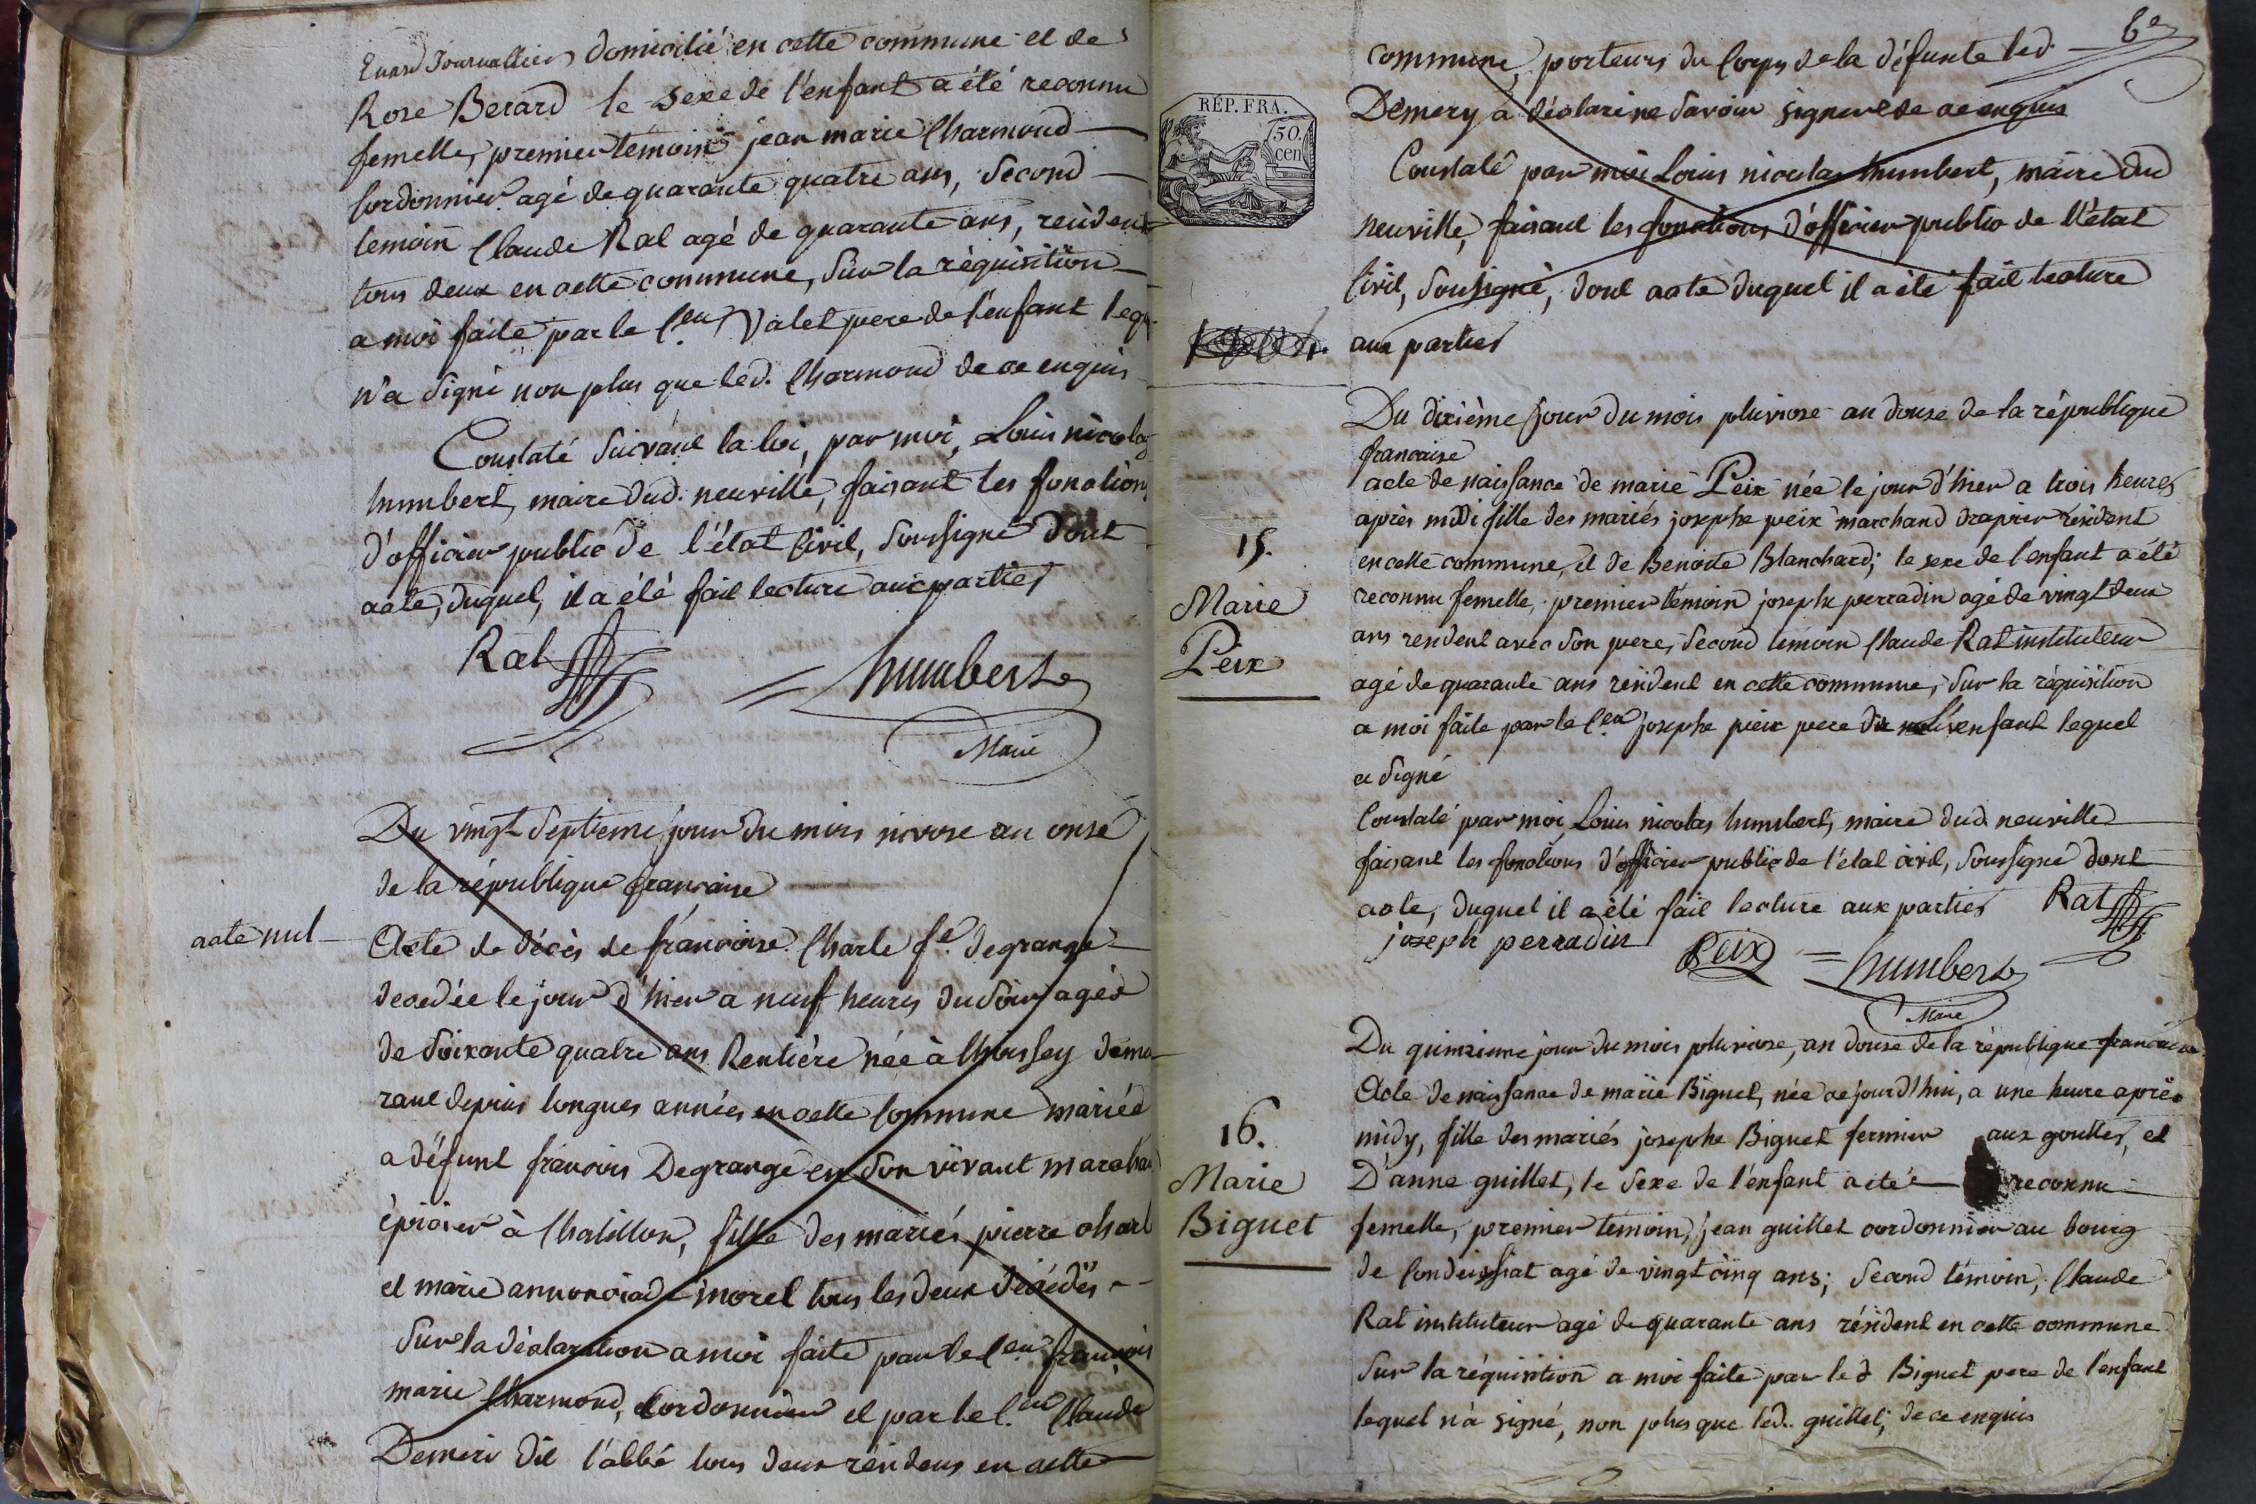 Evard Journallier domicilié en cette commune et de
Rose Berard le sexe de l'enfant a été reconnu
femelle, premier témoin jean marie Charmond
Cordonnier agé de quarante quatre ans, Second
temoin Claude Rat agé de quarante ans, resident
tous deux en cette commune, Sur la réquisition
a moi faite par le C.en Valet pere de l'enfant leq
n'a signé non plus que led. Charmond de ce enquis
Constaté Suivant la loi, par moi, Louis nicolas
humbert, maire dud. neuville, faisant les fonctions
d'officier public de l'état Civil, Soussigné dont
acte, duquel, il a été fait lecture aux parties
Rat
humbert
Maire
Du vingt Septieme jour du mois nivose an onse
de la république francaise
acte nul
Acte de décès de francoise Charle f.e degrange
decedée le jour d'hier a neuf heures du Soir agée
de Soixante quatre ans Rentière née à thoissey demeu
rant depuis longues années en cette Commune mariée
a défunt francois Degrange en Son vivant marchan
épicier à Chatillon, fille des mariés pierre charl
et marie annonciade morel tous les deux décédés
Sur la déclaration a moi faite par le C.en francois
marie Charmond, Cordonnier et par le C.en Claude
Demeri dit l'abbé tous deux résidens en cette
6e
commune, porteurs du Corps de la défunte led.
Demery a déclaré ne Savoir signer de ce enquis
RÉP. FRA.
50.
cen
Constaté par moi Louis nicolas humbert, maire dud
neuville, faisant les fonctions d'officier public de l'état
Civil, Sousigné, dont acte duquel il a été fait lecture
aux parties
Du dixième jour du mois pluviose an douse de la république
francaise
acte de naissance de marie Peix née le jour d'hier a trois heures
après midi fille des mariés josephe peix marchand drapier résident
15.
en cette commune, et de Benoite Blanchard; le sexe de l'enfant a été
Marie
reconnu femelle, premier témoin joseph perradin agé de vingt deux
ans resident avec Son pere, Second témoin Claude Rat instituteur
Peix
agé de quarante ans résident en cette commune, Sur la réquisition
a moi faite par le C.en josephe peix pere de l'enfant lequel
a signé
Constaté par moi Louis nicolas humbert, maire dud. neuville
faisant les fonctions d'officier public de l'état civil, Soussigné dont
acte, duquel il a été fait lecture aux parties Rat
joseph perradin Peix humbert
Maire
Du quinzieme jour du mois pluviose, an douse de la république francaise
Acte de naissance de marie Biguet, née ce jourd'hui, a une heure après
16.
midy, fille des mariés josephe Biguet fermier aux gouttes, et
Marie
D'anne guillet, le Sexe de l'enfant a été reconnu
Biguet
femelle, premier témoin, jean guillet cordonnier au bourg
de Condeissiat agé de vingt cinq ans; Second témoin, Claude
Rat instituteur agé de quarante ans résident en cette commune
Sur la réquisition a moi faite par le d Biguet pere de l'enfant
lequel n'a signé, non plus que led. guillet; de ce enquis